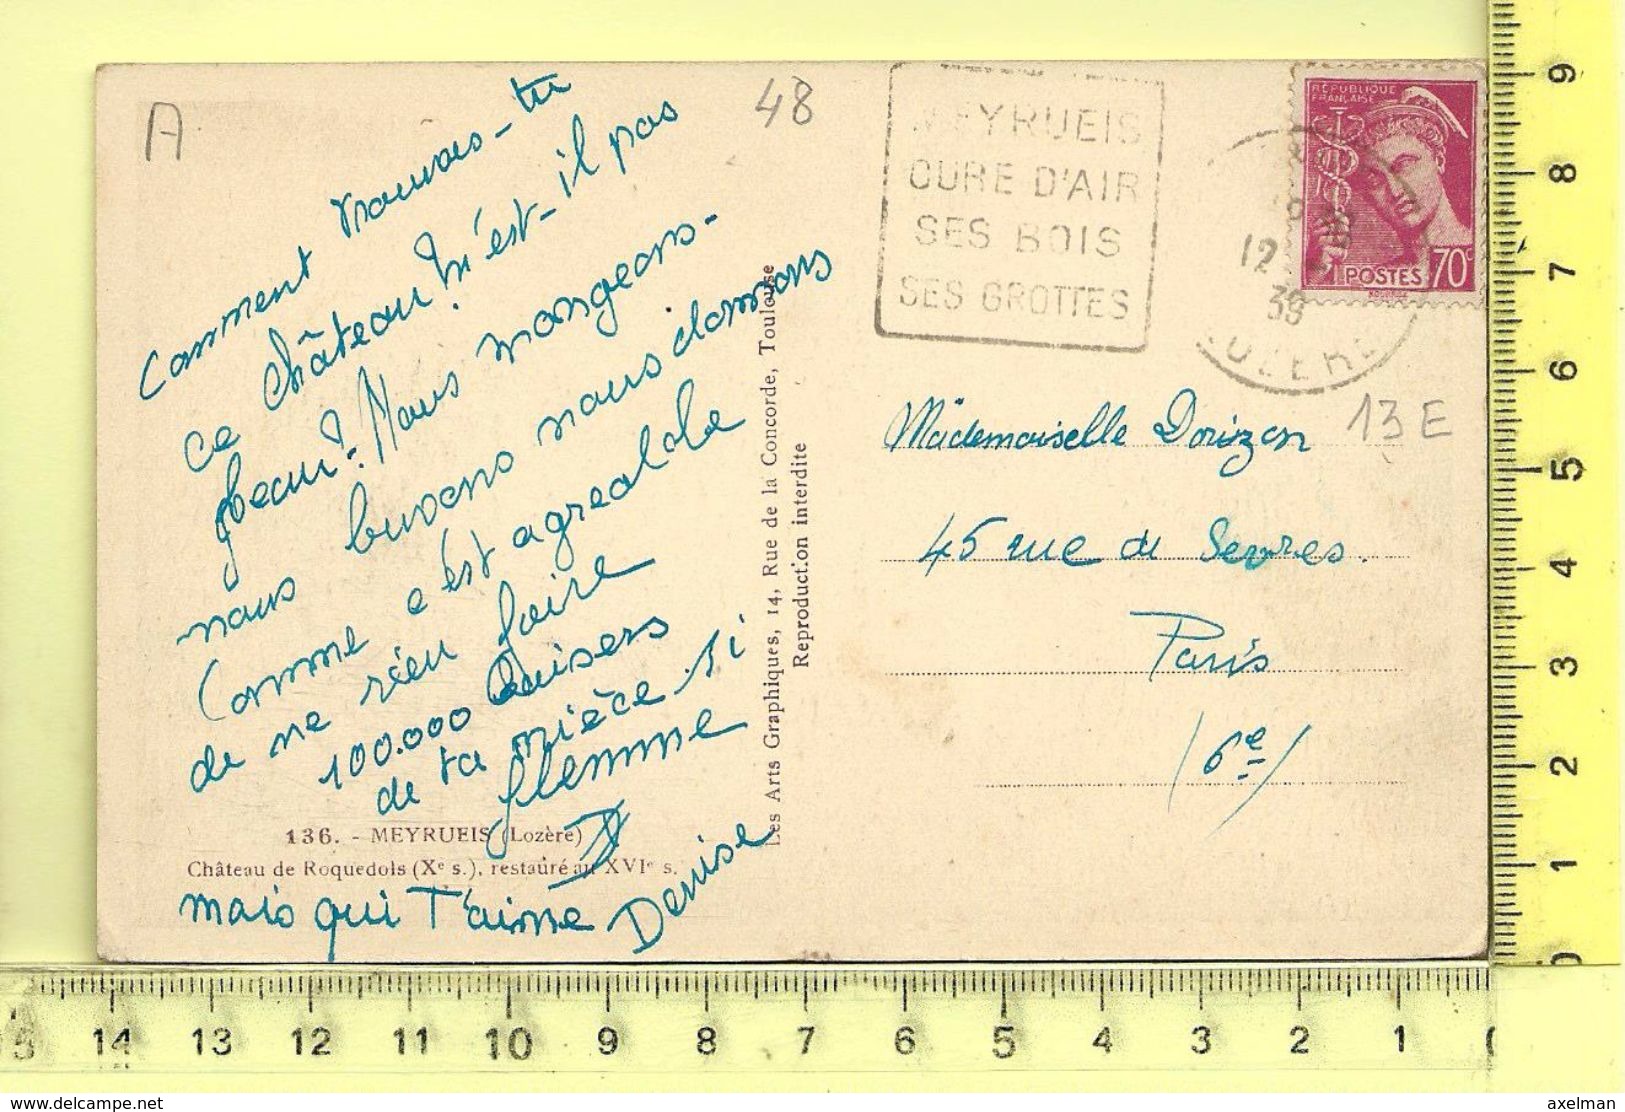 A
48
Comment trouves-tu
ce château ? n'est-il pas
beau ? Nous mangeons -
nous buvons nous dormons
Comme c'est agréable
de ne rien faire
100.000 baisers
de ta nièce si
flemme
mais qui t'aime Denise
136. - MEYRUEIS (Lozère)
Château de Roquedols (Xe s.), restauré au XVIe s.
Les Arts Graphiques, 14, Rue de la Concorde, Toulouse
Reproduction interdite
MEYRUEIS
CURE D'AIR
SES BOIS
SES GROTTES
12
39
LOZERE
RÉPUBLIQUE
FRANÇAISE
POSTES 70c
13 E
Mademoiselle Dorizon
45 rue de Sevres.
Paris
(6e)
9
8
7
6
5
4
3
2
1
14 13 12 11 10 9 8 7 6 5 4 3 2 1
www.delcampe.net
axelman